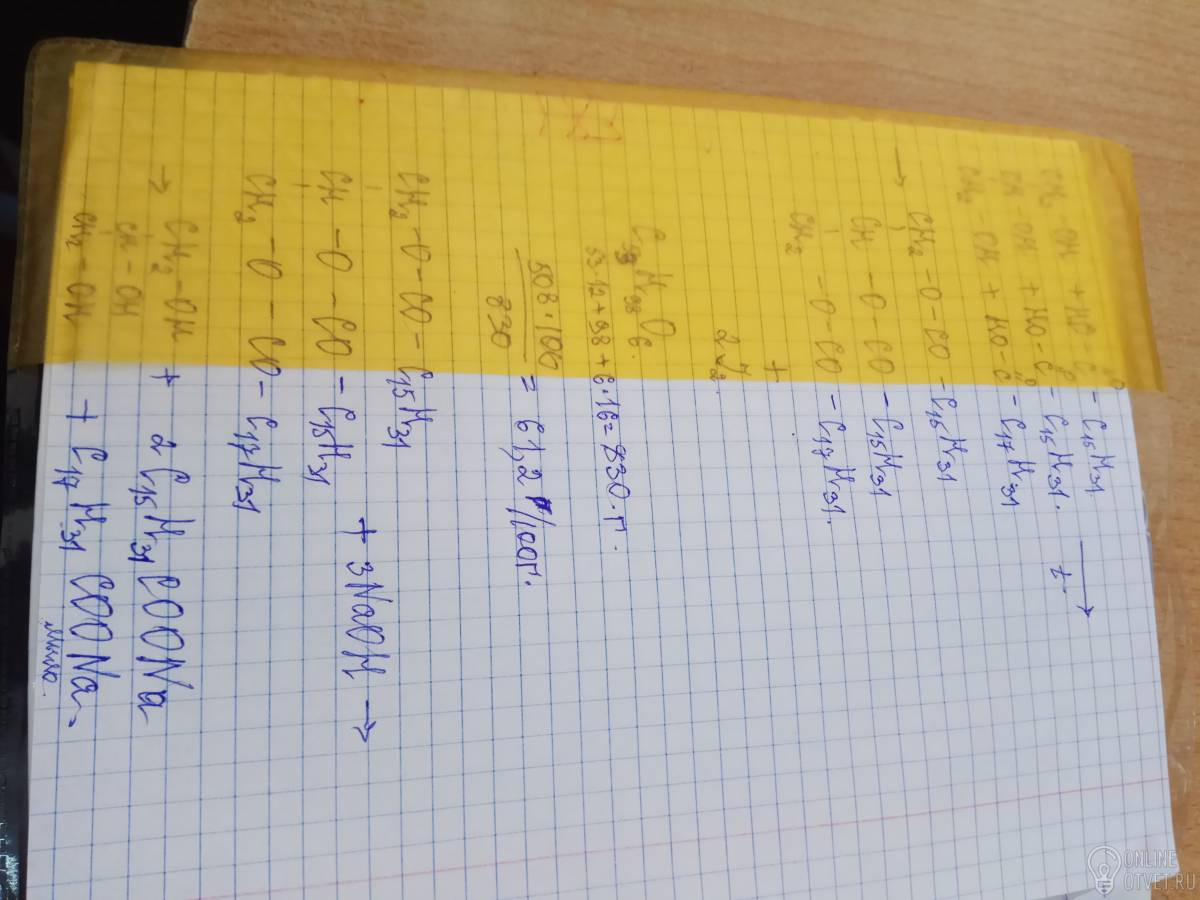 CH₂ - OH + HO - C - C₁₅H₃₁
CH - OH + HO - C - C₁₅H₃₁. → t
CH₂ - OH + HO - C - C₁₇H₃₁
→ CH₂ - O - CO - C₁₅H₃₁
CH - O - CO - C₁₅H₃₁
CH₂ - O - CO - C₁₇H₃₁.
+
H₉₈O₆.
53·12+98+6·16=830 г.
508·100
830
= 61,2 г/100г.
CH₂ - O - CO - C₁₅H₃₁
CH - O - CO - C₁₅H₃₁ + 3NaOH →
CH₂ - O - CO - C₁₇H₃₁
→ CH₂ - OH + 2 C₁₅H₃₁COONa
CH - OH
CH₂ - OH + C₁₇H₃₁COONa -
мыло.
ONLINE
OTVET.RU